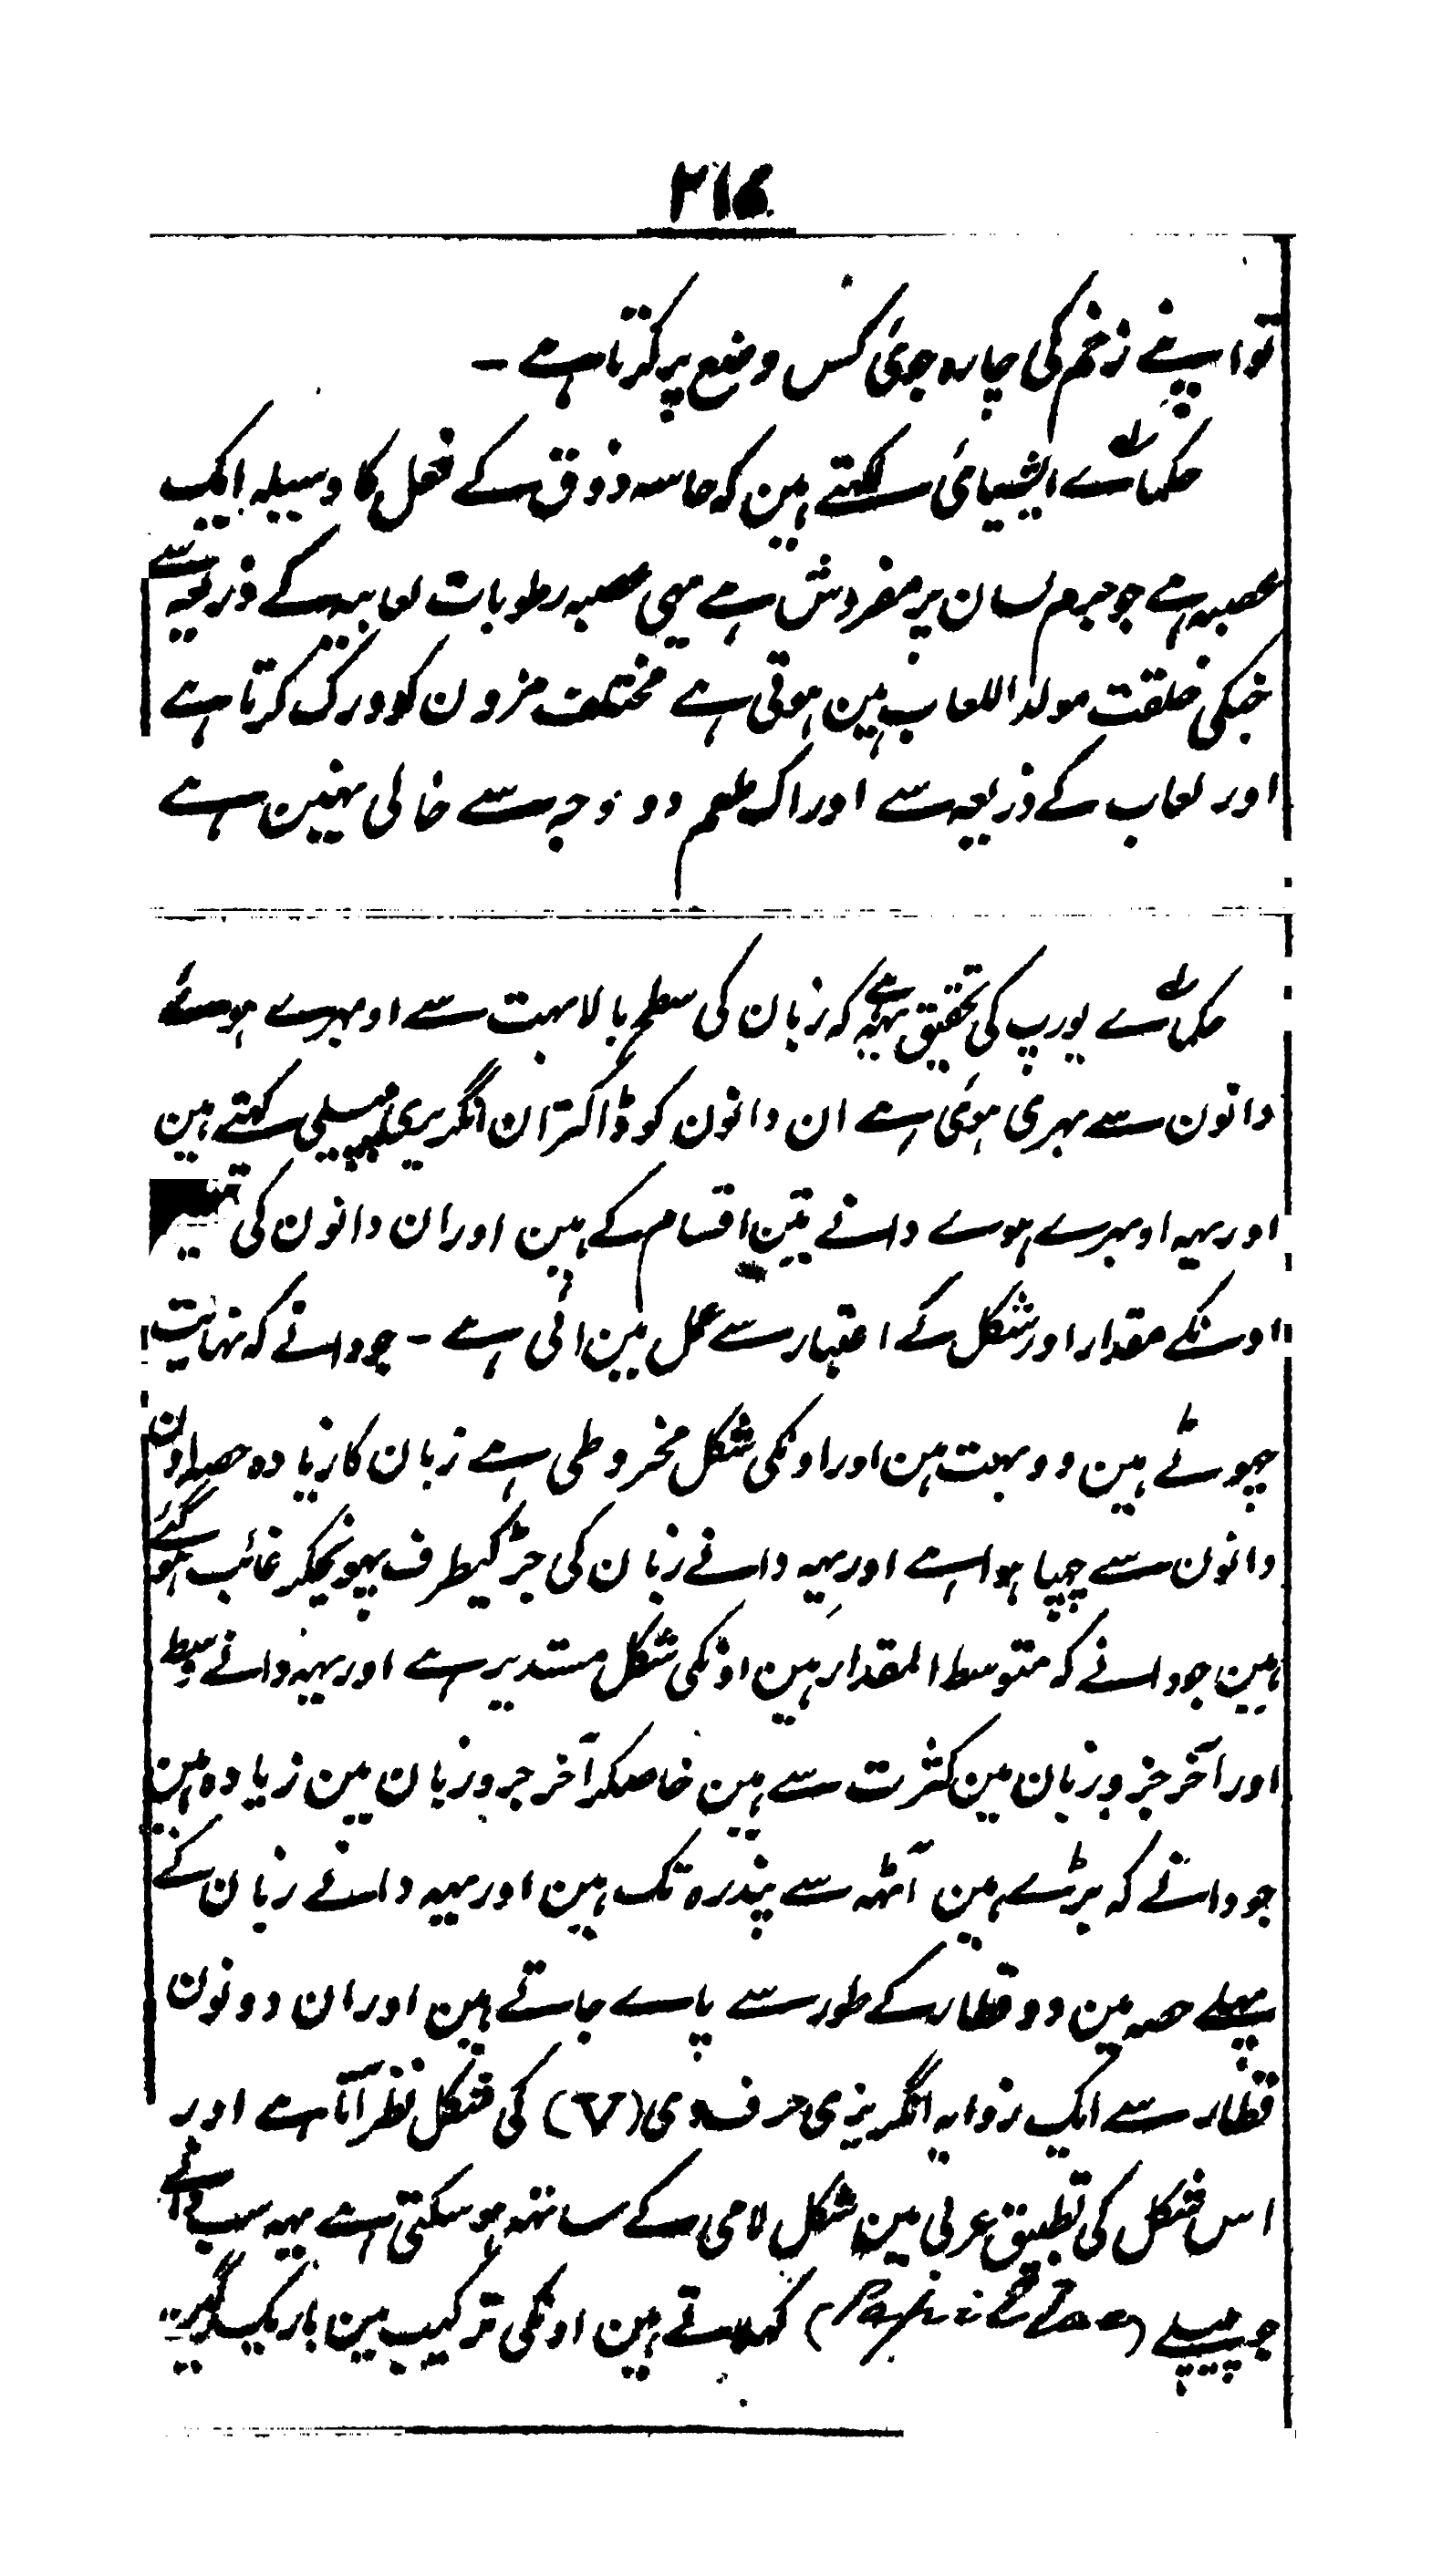 تو اپنے زخم کی چارہ جوئی کس وضع پر کرتا ہے ۔
حکمائے ایشیائی لکہتے ہین کہ حاسہ ذوق کے فعل کا وسیلہ ایک
عصبہ ہے جو جرم لسان پر مفروش ہے یہی عصبہ رطوبات لعابیہ کے ذریعہ سے
جنکی خلقت مولد اللعاب مین ہوتی ہے مختلف مزون کو درک کرتا ہے
اور لعاب کے ذریعہ سے ادراک طعم دو وجہ سے خالی نہین ہے
حکمائے یورپ کی تحقیق یہہ ہے کہ زبان کی سطح بالا بہت سے اوبہرے ہوئے
دانون سے بہری ہوئی ہے ان دانون کو ڈاکتران انگریزی پیپیلی کہتے ہین
اور یہہ اوبہرے ہوے دانے تین اقسام کے ہین اور ان دانون کی
اونکے مقدار اور شکل کے اعتبار سے عمل مین ائی ہے ۔ جو دانے کہ نہایت
چہوٹے ہین وہ بہت ہین اور اونکی شکل مخروطی ہے زبان کا زیادہ حصہ اون
دانون سے چہپا ہوا ہے اور یہہ دانے زبان کی جڑ کیطرف پہونچکر غائب ہو گئے
ہین جو دانے کہ متوسط المقدار ہین اونکی شکل مستدیر ہے اور یہہ دانے وسط
اور آخر جزو زبان مین کثرت سے ہین خاصکر آخر جزو زبان مین زیادہ ہین
جو دانے کہ بڑے ہین آٹہہ سے پندرہ تک ہین اور یہہ دانے زبان کے
پہلے حصہ مین دو قطار کے طور سے پاے جاتے ہین اور ان دونون
قطار سے ایک زوایہ انگریزی حرف وی (V) کی شکل نظر آتا ہے اور
اس شکل کی تطبیق عربی مین شکل لامی کے ساتہہ ہو سکتی ہے یہہ سب دانے
جو پیپیلے (Papillae) کہلاتے ہین اونکی ترکیب مین باریک